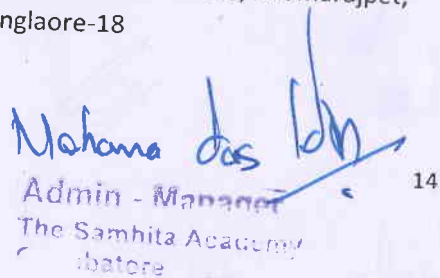 rajpet,
nglaore-18
Mohana das
14
Admin - Manager
The Samhita Academy
batore